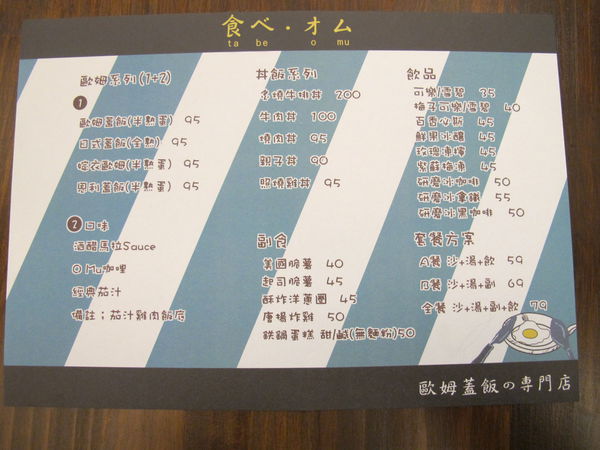 食べ・オム
ta be o mu
歐姆系列(1+2)
1
歐姆蓋飯(半熟蛋) 95
日式蓋飯(全熟) 95
浴衣歐姆(半熟蛋) 95
恩利蓋飯(半熟蛋) 95
2 口味
酒醋馬拉Sauce
O Mu咖哩
經典茄汁
備註;茄汁雞肉飯底
丼飯系列
炙燒牛排丼 200
牛肉丼 100
燒肉丼 95
親子丼 90
照燒雞丼 95
副食
美國脆薯 40
起司脆薯 45
酥炸洋蔥圈 45
唐揚炸雞 50
鐵鍋蛋糕 甜/鹹(無麵粉)50
飲品
可樂/雪碧 35
梅子可樂/雪碧 40
百香心斯 45
鮮果冰釀 45
玫瑰凍檸 45
紫蘇梅凍 45
研磨冰咖啡 50
研磨冰拿鐵 55
研磨冰黑咖啡 50
套餐方案
A餐 沙+湯+飲 59
B餐 沙+湯+副 69
全餐 沙+湯+副+飲 79
歐姆蓋飯の専門店